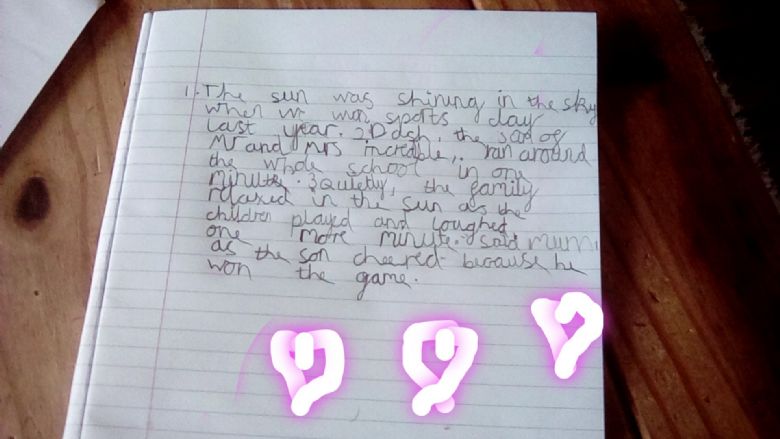 1. The sun was shining in the sky
when we won sports day
last year. 2, Dash, the son of
Mr and Mrs increable, ran around
the whole school in one
minute. 3 Quietly, the family
relaxed in the sun as the
children played and loughed
one more minute. said mummi
as the son cheered because he
won the game.